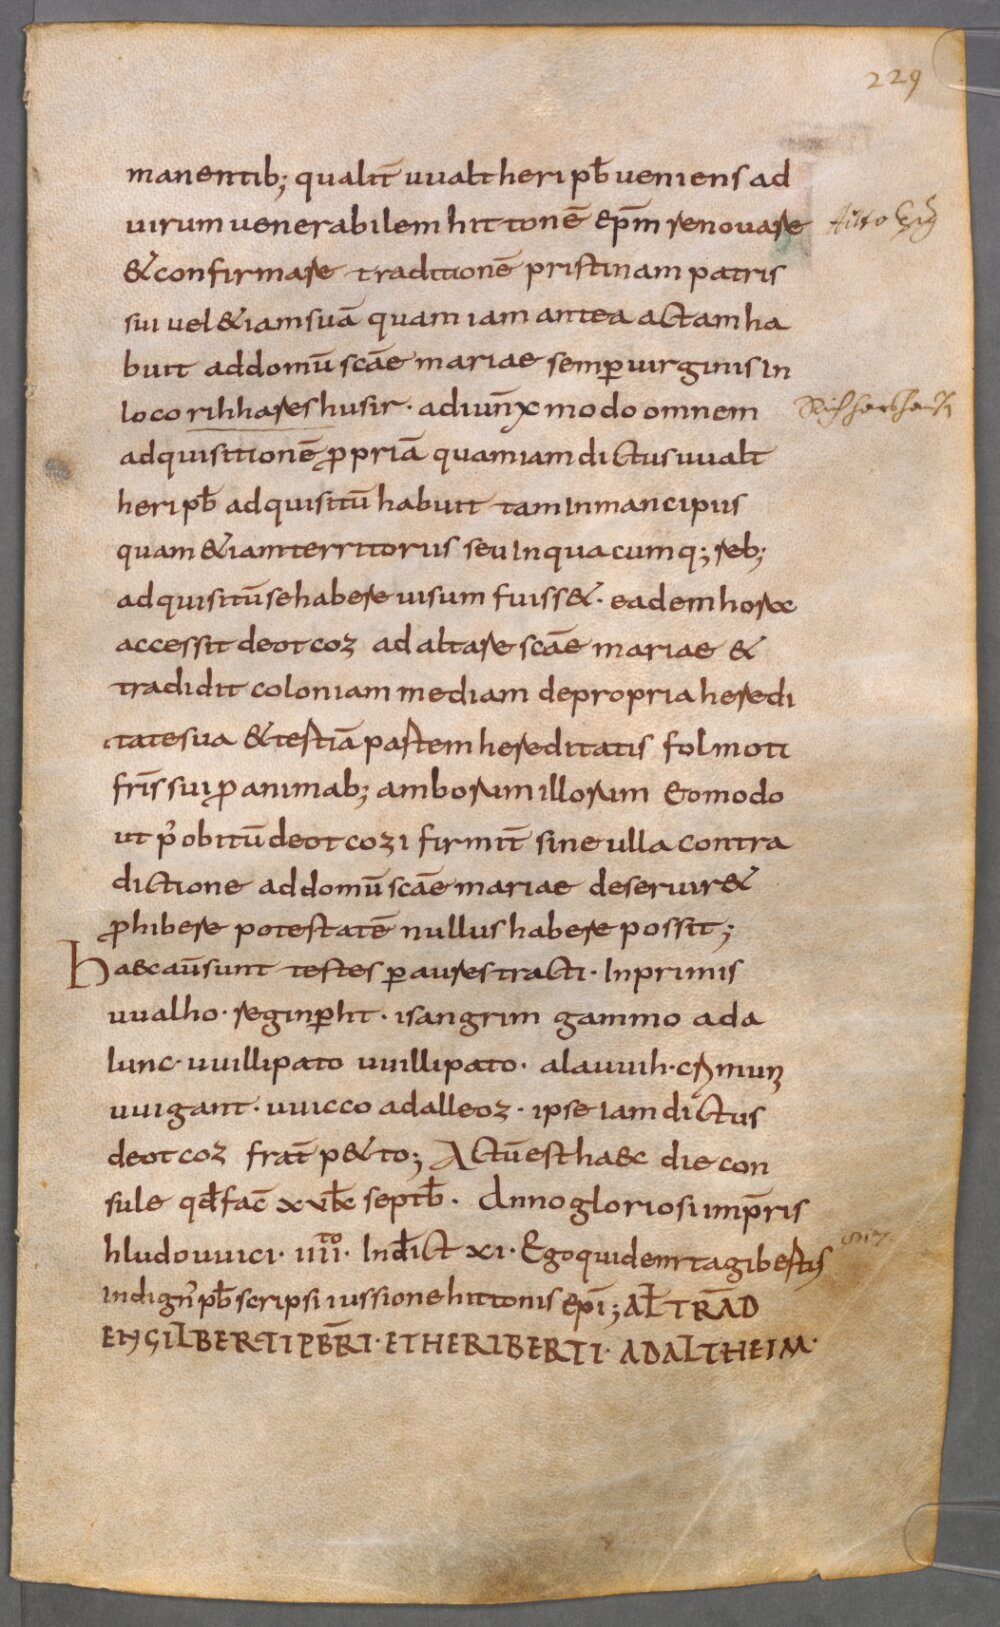 229
manentib; qualit̄ uualtheri pb̄ ueniens ad
uirum uenerabilem hittonē ep̄m renouare
& confirmare traditionē pristinam patris
sui uel &iam suā quam iam antea actam ha
buit ad domū scāe mariae semp̄ uirginis in
loco rihhareshusir · adiun̄x modo omnem
adquisitionē p̄priā quam iam dictus uualt
heri pb̄ adquisitū habuit tam in mancipiis
quam &iam territoriis seu in quacumq; reb;
adquisitū se habere uisum fuiss& · eadem hora
accessit deotcoz ad altare scāe mariae &
tradidit coloniam mediam de propria heredi
tate sua & tertiā partem hereditatis folmoti
fr̄is sui p̄ animab; amborum illorum eo modo
ut p' obitū deotcozi firmit̄ sine ulla contra
dictione ad domū scāe mariae deseruir&
p̄hibere potestatē nullus habere possit;
Haec aūt sunt testes p̄ aures tracti · In primis
uualho · reginp̄ht · isangrim gammo ada
lunc · uuillipato uuillipato · alauuih · cunmunt
uuigant · uuicco adalleoz · ipse iam dictus
deotcoz frat̄ p&to; Actū est haec die con
sule qd̄ fac̄ xv kł septb̄ · Anno gloriosi imp̄ris
hludouuici · iiii to · Indict̄ xi · Ego quidem tagibertus
indign' pb̄ scripsi iussione hittonis ep̄i; AL̄ TRĀD
ENGILBERTI PB̄RI · ET HERIBERTI · ADALTHEIM ·
Hitto Ep̄
Richhershaus͂